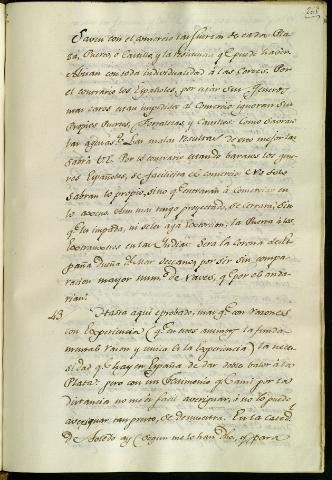 Saven con el comercio las fuerzas de cada Pla-
za, Puerto, ó Castillo, y la resistencia q.e puede hacer.
Avisan con toda individualidad á las Cortes. Por
el contrario los Españoles, por estar sus generos
mui caros estan impedidos al Comercio; ignoran sus
Propios Puertos, Fortalezas y Castillos. Como
las agenas? Las malas resultas de esto mejor las
Sabrá V.E. Por el contrario estando baratos los ge-
neros Españoles, se facilitara el comercio. No solo
Sabran lo propio, sino q.e entraran á Comerciar en
lo ageno. Con mas tengo proyectado, se cerrará sin
q.e lo impida, ni sean la Puerta á los
extranxeros en las Indias. Sera la Corona de Es-
paña Dueña del Mar Occeano, por ser sin compa-
racion mayor num.o de Naves, q.e por el anda-
rian.
43 Hasta aqui é probado, mas q.e con razones
con Experiencia (q.e en otros asumptos la funda-
mental razon y unica es la experiencia) la nece-
sidad q.e hay en España de dar doble balor á la
Plata; pero con un Testimonio q.e á mi por la
distancia no me és facil averiguar, ó no lo puedo
averiguar tan presto, se demuestra. En la Catedr.l
de Toledo ay (segun me lo han dho, y para